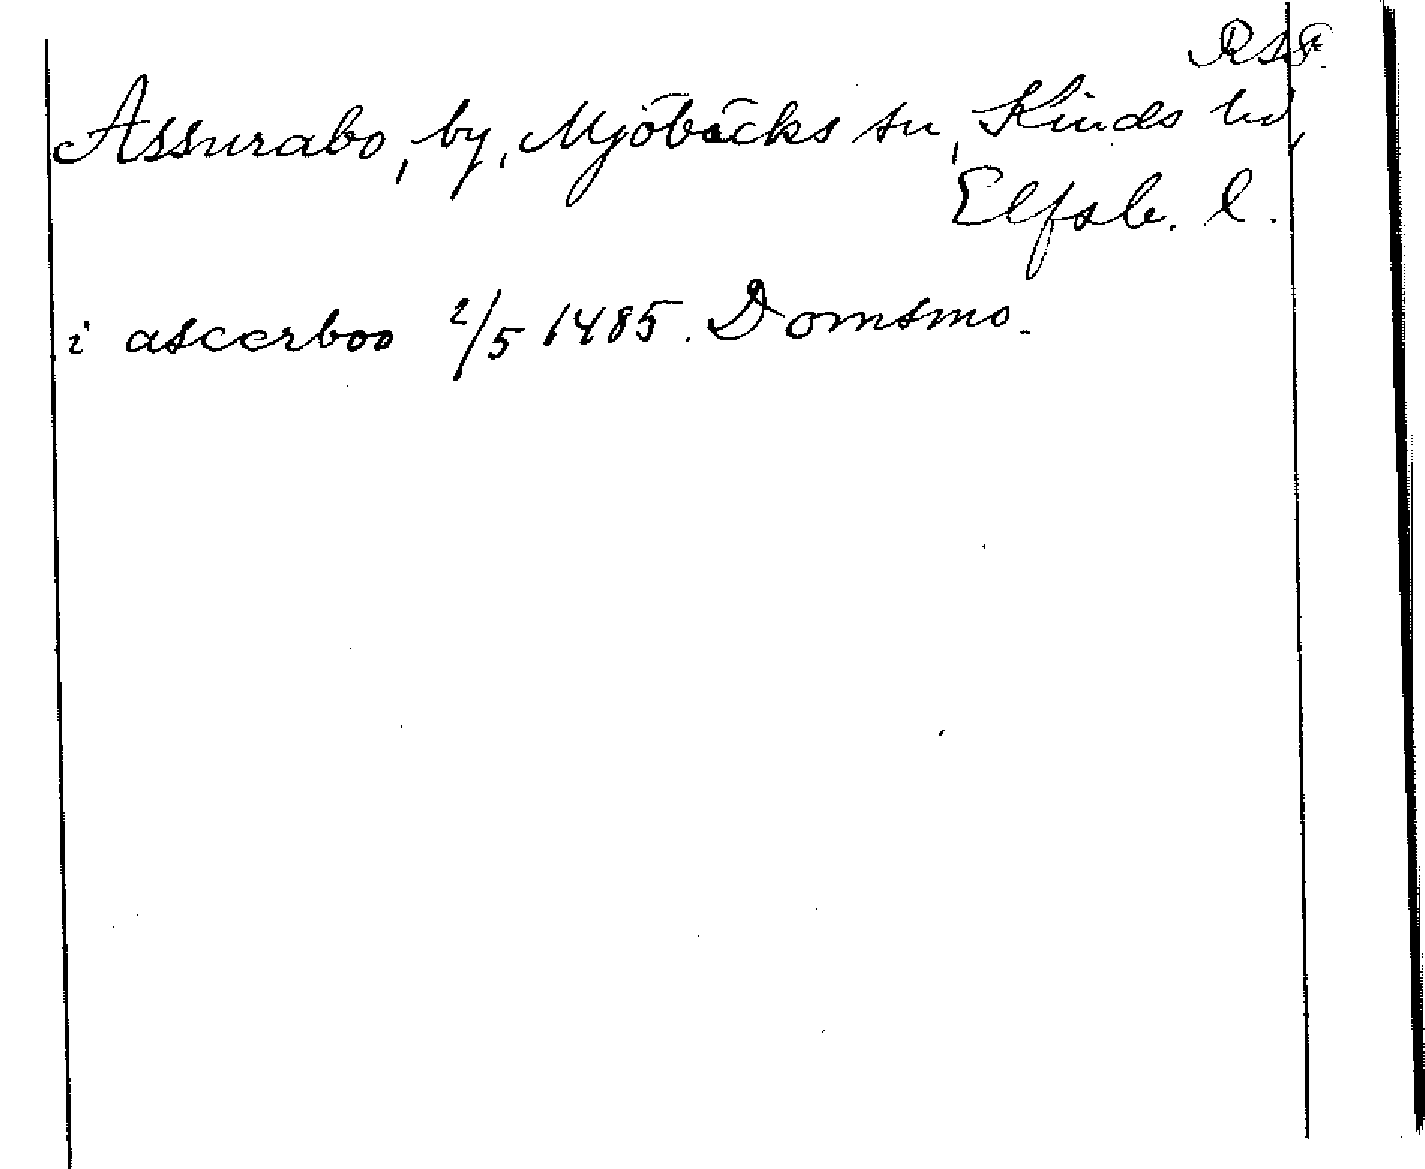 RAF.
Assurabo, by, Mjöbäcks sn, Kinds hd,
Elfsb. l.
i asccrboo 2/5 1485. Domsmo.